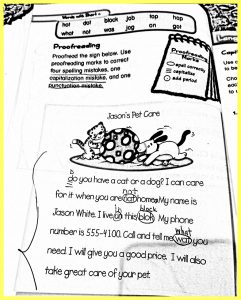 Words with Short o
hot dot block job top hop
what not was jog on got
Proofreading
Proofread the sign below. Use
proofreading marks to correct
four spelling mistakes, one
capitalization mistake, and one
punctuation mistake.
Proofreading
Marks
spell correctly
capitalize
add period
Jason's Pet Care
do you have a cat or a dog? I can care
not
for it when you are home My name is
block
Jason White. I live this My phone
number is 555-4100. Call and tell me you
what
need. I will give you a good price. I will also
take great care of your pet.